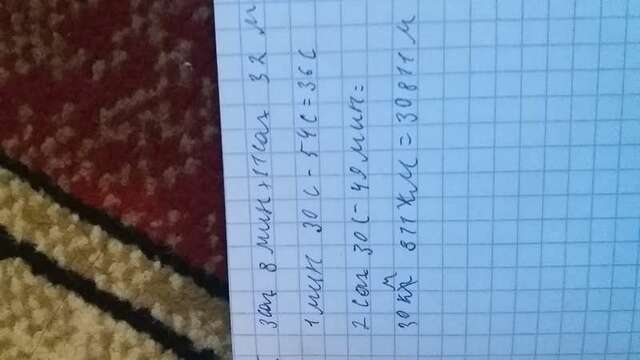 3 саг 8 мин + 11 саг 32 м
1 мин 30 с - 54 с = 36 с
2 саг 30 с - 49 мин =
30 км 811 км = 30811 м